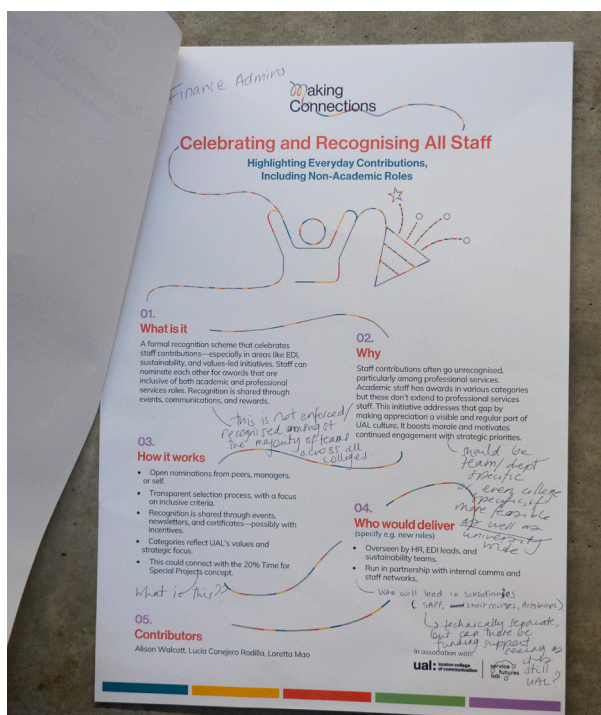 Finance Admins
Making
Connections
Celebrating and Recognising All Staff
Highlighting Everyday Contributions,
Including Non-Academic Roles
01.
What is it
A formal recognition scheme that celebrates
staff contributions—especially in areas like EDI,
sustainability, and values-led initiatives. Staff can
nominate each other for awards that are
inclusive of both academic and professional
services roles. Recognition is shared through
events, communications, and rewards.
this is not enforced/
recognised amongst
the majority of teams
across all
colleges
02.
Why
Staff contributions often go unrecognised,
particularly among professional services.
Academic staff has awards in various categories
but these don't extend to professional services
staff. This initiative addresses that gap by
making appreciation a visible and regular part of
UAL culture. It boosts morale and motivates
continued engagement with strategic priorities.
should be
team/dept
specific
or every college
specific, if
more feasible
as well as
university
wide
03.
How it works
• Open nominations from peers, managers,
or self.
• Transparent selection process, with a focus
on inclusive criteria.
• Recognition is shared through events,
newsletters, and certificates—possibly with
incentives.
• Categories reflect UAL's values and
strategic focus.
• This could connect with the 20% Time for
Special Projects concept.
What is this?
04.
Who would deliver
(specify e.g. new roles)
• Overseen by HR, EDI leads, and
sustainability teams.
• Run in partnership with internal comms and
staff networks.
who will lead in subsidiaries
(SAPP, short courses, Artstemps)
technically separate,
but can there be
funding support
seeing as
it is
still
UAL?
05.
Contributors
Alison Walcott, Lucia Conejero Rodilla, Loretta Mao
In association with:
ual: london college
of communication
service
futures
lab